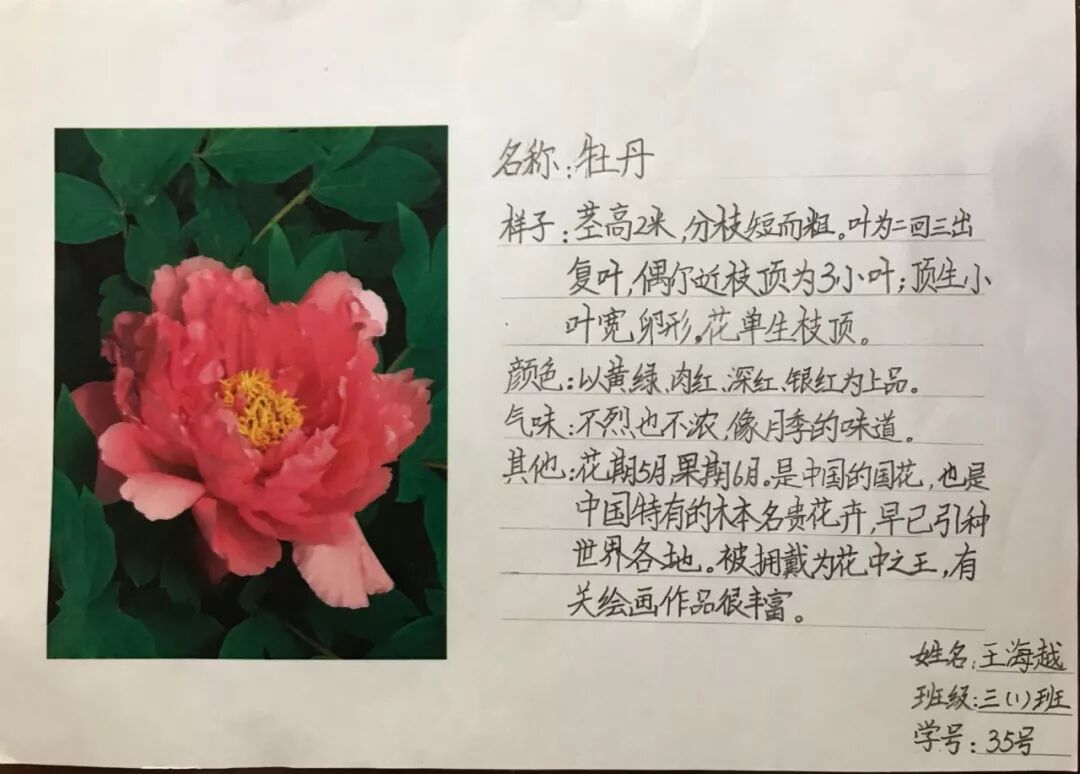 名称:牡丹
样子:茎高2米,分枝短而粗。叶为二回三出
复叶,偶尔近枝顶为3小叶;顶生小
叶宽卵形。花单生枝顶。
颜色:以黄绿、肉红、深红、银红为上品。
气味:不烈也不浓,像月季的味道。
其他:花期5月,果期6月。是中国的国花,也是
中国特有的木本名贵花卉,早已引种
世界各地。被拥戴为花中之王,有
关绘画作品很丰富。
姓名:王海越
班级:三(1)班
学号:35号